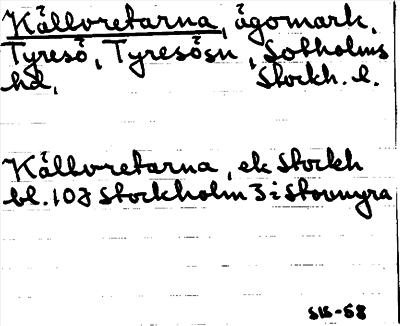 Källvretarna, ägomark,
Tyresö, Tyresösn, Sotholms
hd, Stockh. l.
Källvretarna, ek Stockh
bl. 107 Stockholm 3 i Stormyra
SIS-58